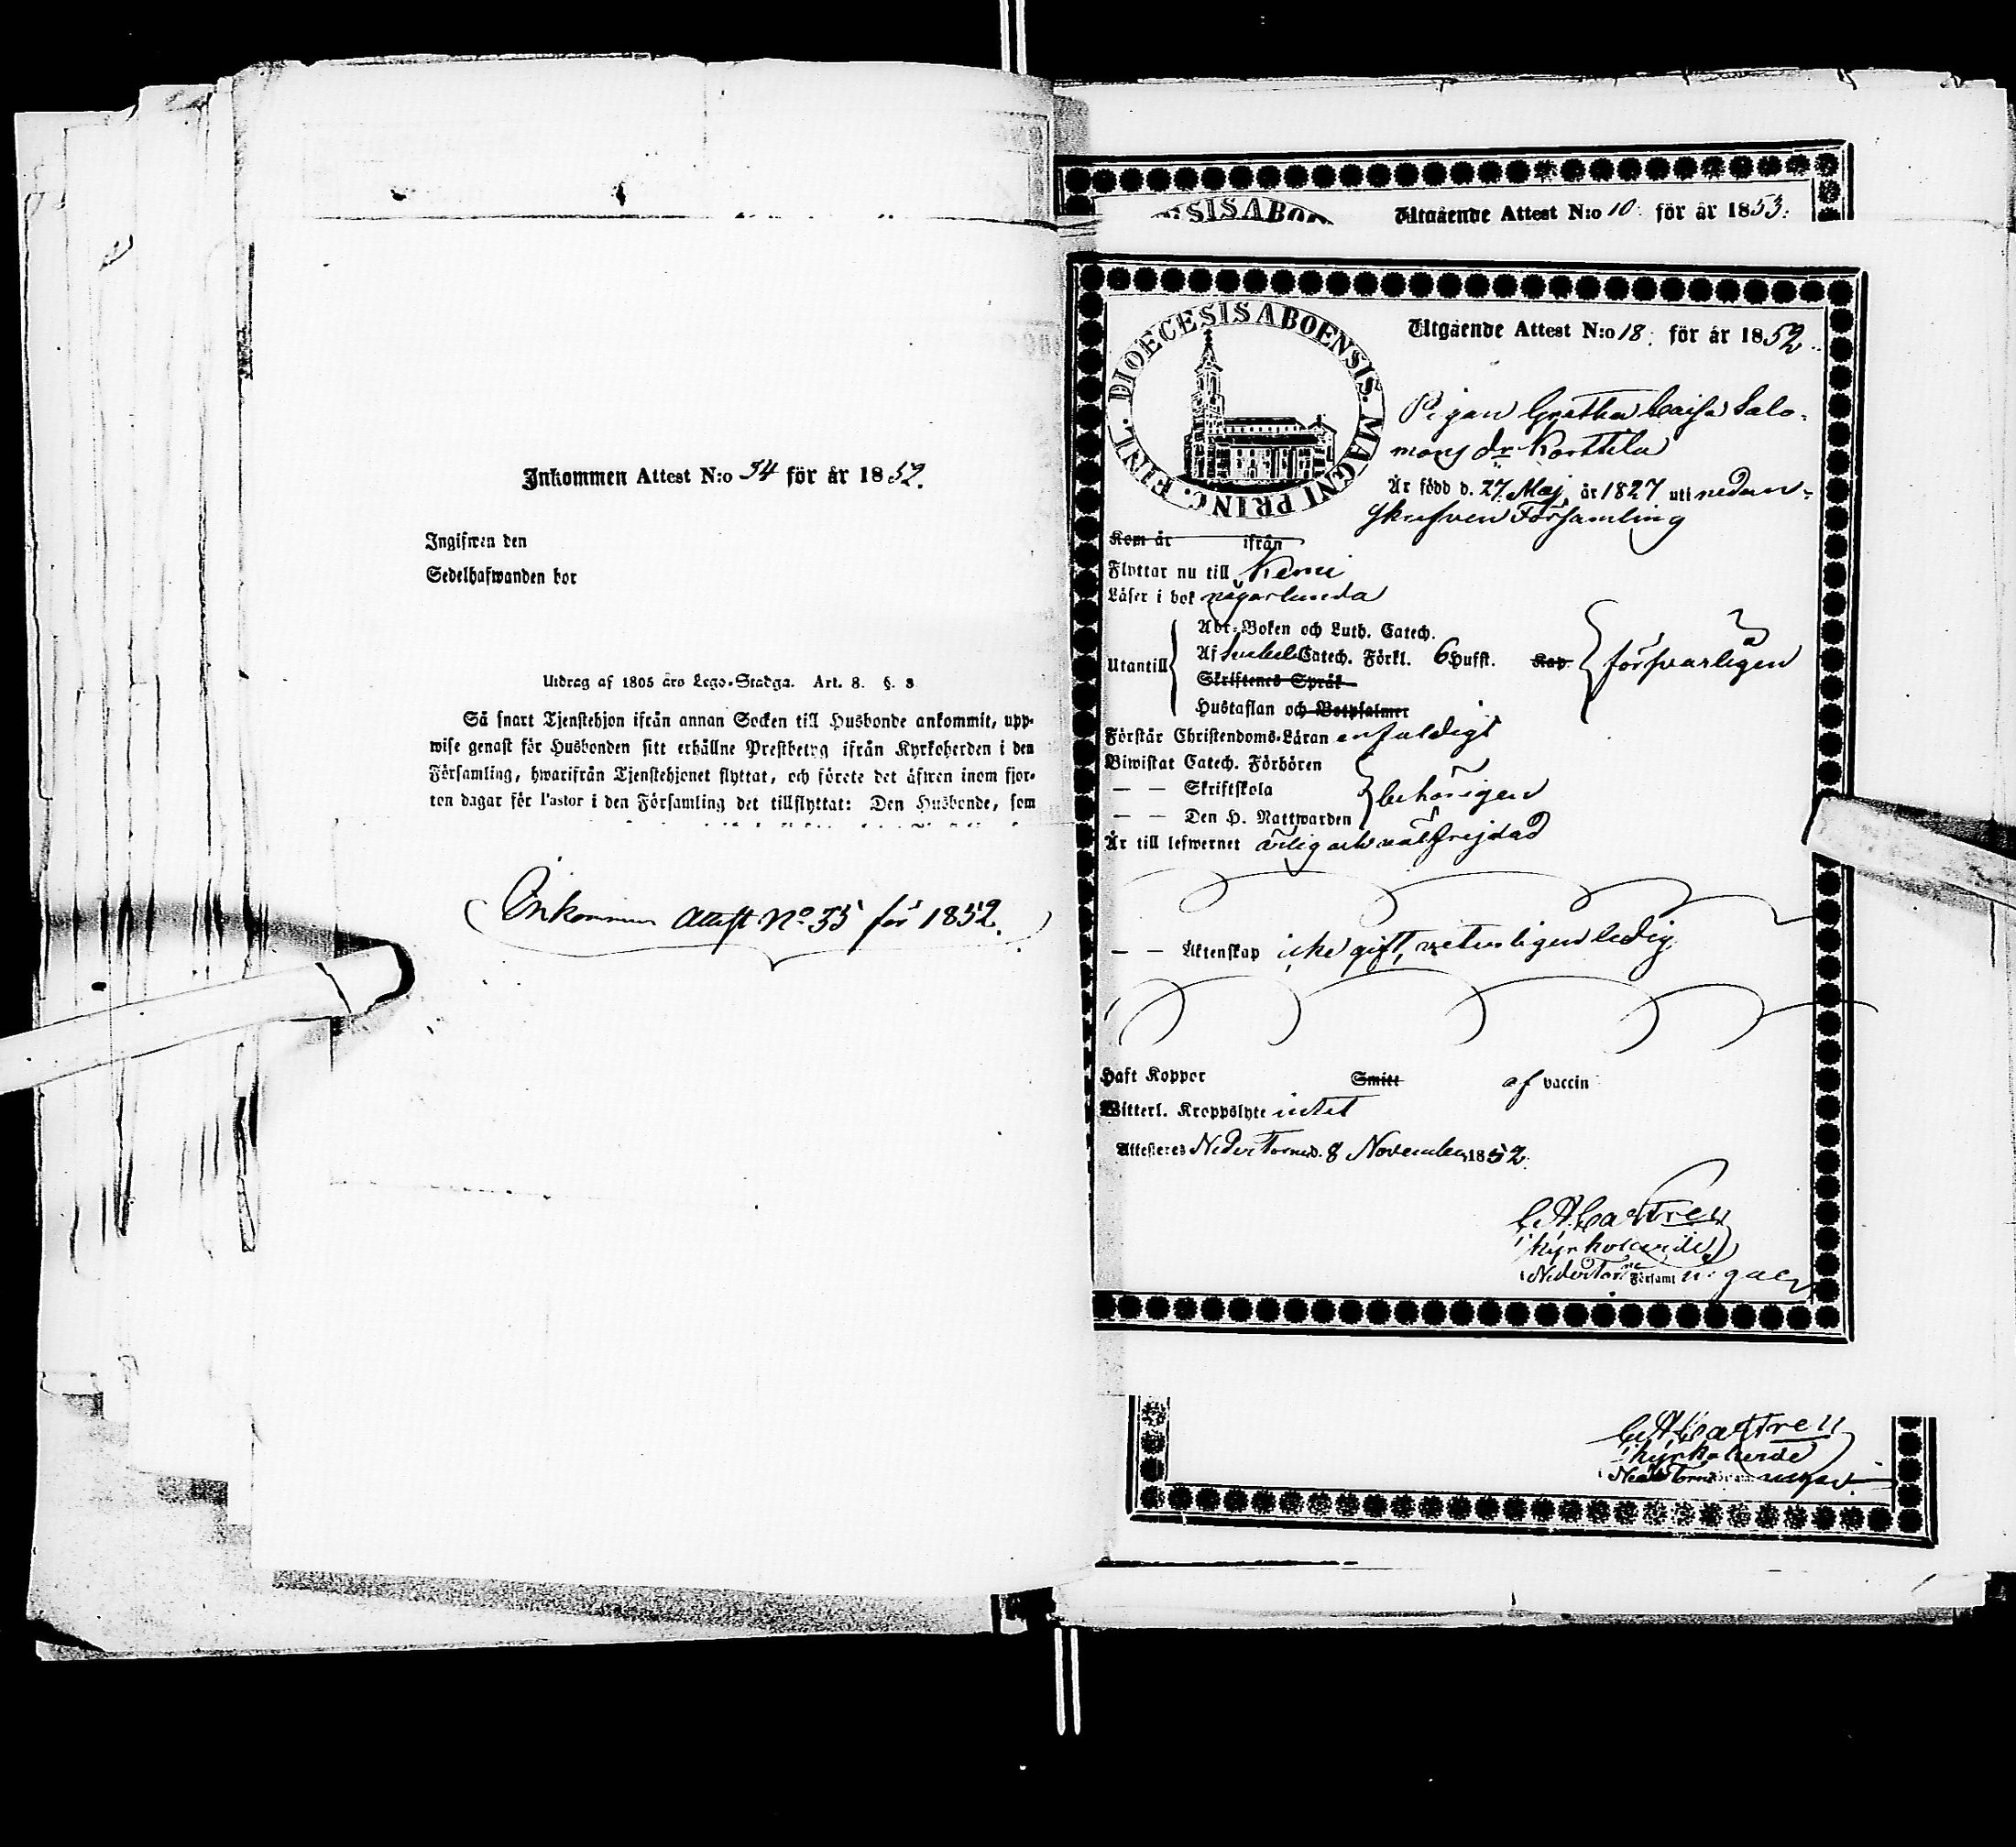 Inkommen Attest N:o 34 för år 1852.
Ingifwen den
Sedelhafwanden bor
Utdrag af 1805 års Lego-Stadga. Art. 8. §. 8
Så snart Tjenstehjon ifrån annan Socken till Husbonde ankommit, upp-
wise genast för Husbonden sitt erhållne Prestbetyg ifrån Kyrkoherden i den
Församling, hwarifrån Tjenstehjonet flyttat, och förete det äfwen inom fjor-
ton dagar för Pastor i den Församling det tillflyttat: Den Husbonde, som
Inkommen Attest No 35 för 1852.
Utgående Attest N:o 10. för år 1853.
DIOECESIS ABOENSIS. MAGNI PRINC. FINL.
Utgående Attest N:o 18. för år 1852.
Pigan Gretha Caisa Salo-
mons dr Korttila
Är född d. 27 Maj, år 1827 uti nedan-
skrefven Församling
Kom år ifrån
Flyttar nu till Kemi
Läser i bok någorlunda
Utantill
Abc-Boken och Luth. Catech.
Af Catech. Förkl. 6 Hufst. Kap. försvarligen
Skriftenes Språk
Hustaflan och Botpsalmer
Förstår Christendoms-Läran enfaldigt
Biwistat Catech. Förhören
— — Skriftskola behörigen
— — Den H. Nattwarden
Är till lefwernet ärlig och välfrejdad
— — Äktenskap icke gift, veterligen ledig
Haft Koppor Smitt af vaccin
Witterl. Kroppslyte intet
Attesteras Neder Torneå d. 8 November 1852.
C. A. Castren
Kyrkoherde
Neder Torne Församl.
C. A. Castren
Kyrkoherde
Neder Torne